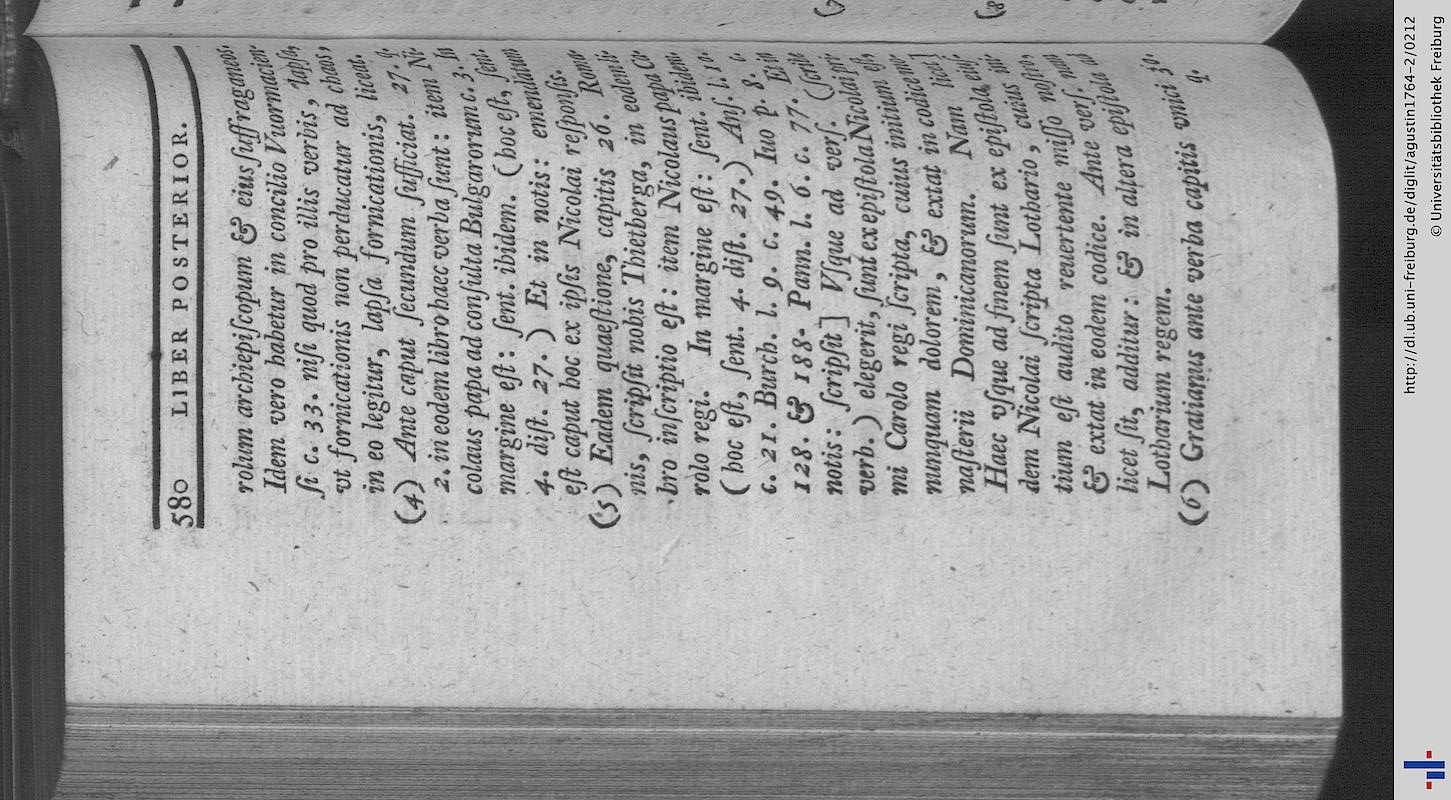 580 LIBER POSTERIOR.
rolum archiepiſcopum & eius ſuffraganeos.
Idem vero habetur in concilio Vuormacien-
ſi c. 33. niſi quod pro illis verbis, lapſis,
vt fornicationis non perducatur ad chaos,
in eo legitur, lapſa fornicationis, liceat.
(4) Ante caput ſecundum ſufficiat. 27. q.
2. in eodem libro haec verba ſunt: item Ni-
colaus papa ad conſulta Bulgarorum c. 3. In
margine eſt: ſent. ibidem. (hoc eſt, ſent.
4. diſt. 27.) Et in notis: emendatum
eſt caput hoc ex ipſis Nicolai reſponſis.
(5) Eadem quaeſtione, capitis 26. Roma-
nis, ſcripſit nobis Thietberga, in eodem li-
bro inſcriptio eſt: item Nicolaus papa Ca-
rolo regi. In margine eſt: ſent. ibidem.
(hoc eſt, ſent. 4. diſt. 27.) Anſ. l. 10.
c. 21. Burch. l. 9. c. 49. Iuo p. 8. c.
128. & 188. Pann. l. 6. c. 77. Et in
notis: ſcripſit] Vſque ad verſ. (ſcribe
verb.) elegerit, ſunt ex epiſtola Nicolai pri-
mi Carolo regi ſcripta, cuius initium eſt,
nunquam dolorem, & extat in codice mo-
naſterii Dominicanorum. Nam licet]
Haec vſque ad finem ſunt ex epiſtola, eiuſ-
dem Nicolai ſcripta Lothario, cuius ini-
tium eſt audito reuertente miſſo noſtro,
& extat in eodem codice. Ante verſ. nam
licet ſit, additur: & in altera epiſtola ad
Lotharium regem.
(6) Gratianus ante verba capitis vnici 30.
q.
http://dl.ub.uni-freiburg.de/diglit/agustin1764-2/0212
© Universitätsbibliothek Freiburg